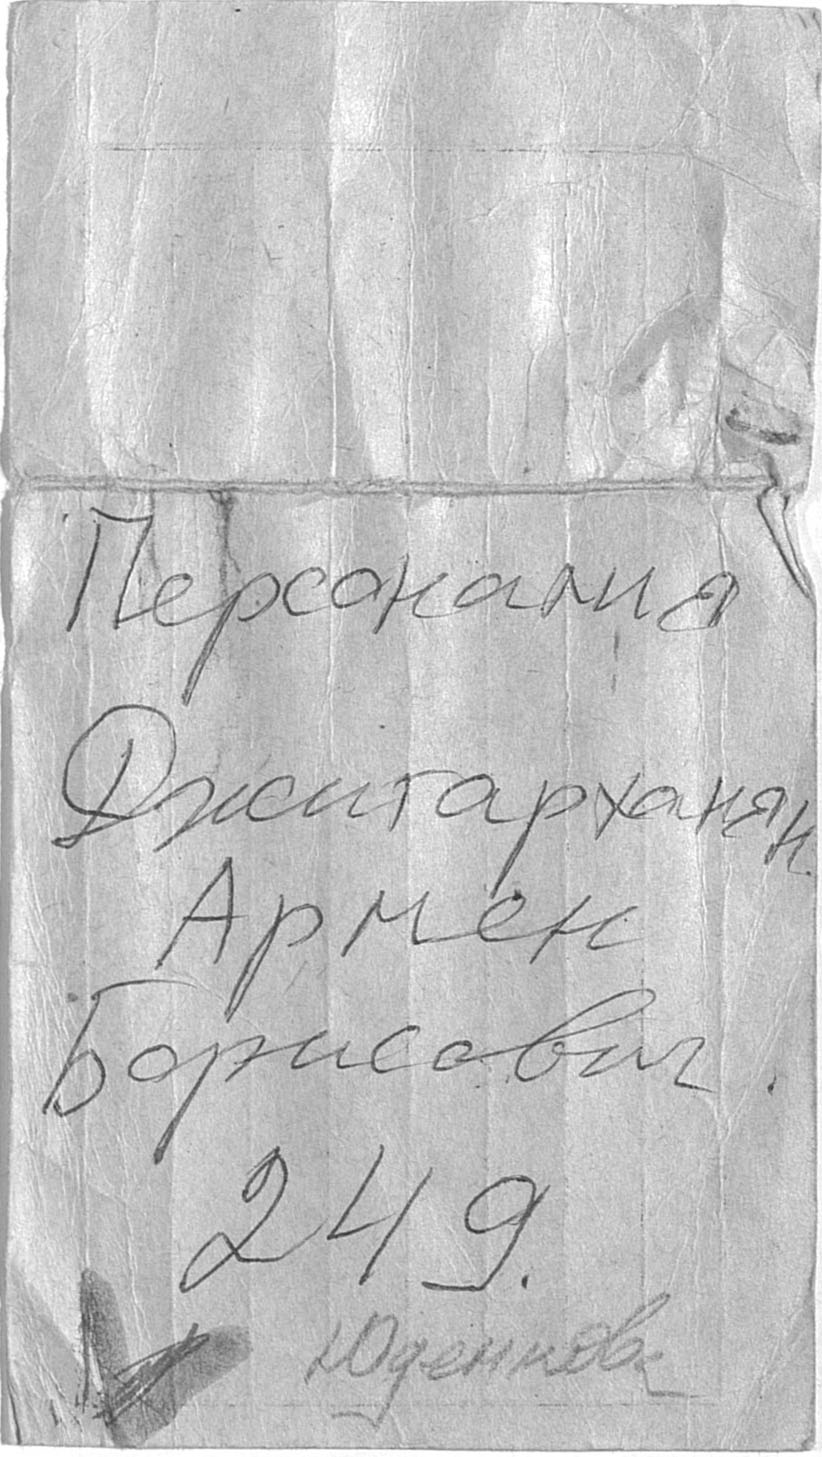 Персоналия
Джигарханян
Армен
Борисович.
249.